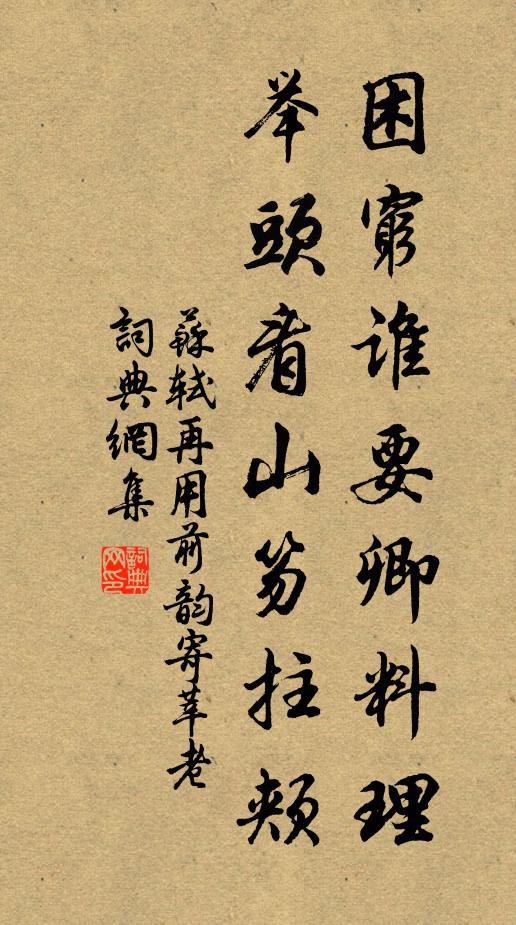 困窮谁要卿料理
举頭看山笏拄頰
蘇軾再用前韵寄莘老
詞典網集
詞典网印